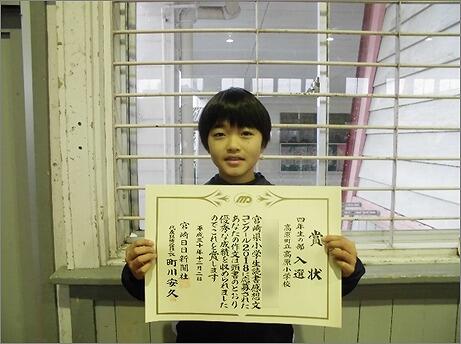 賞状
四年生の部 入選
高原町立高原小学校
宮崎県小学生読書感想文
コンクール2018に応募された
あなたの作文は頭書のとおり
優秀な成績を収められました
のでこれを賞します
平成三十年十二月二日
宮崎日日新聞社
代表取締役社長 町川安久